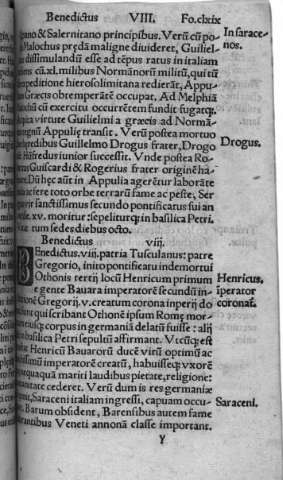 Benedictus VIII. Fo.clxix
pano & Salernitano principibus. Verũ cũ po
In sarace-
nos.
Malochus prędã maligne diuideret, Guiliel
dissimulandũ esse ad tẽpus ratus in italiam
cũ.xl.milibus Normãnorũ militũ, qui tũ
expeditione hierosolimitana redierãt, Appu-
Græcis obtemperãtẽ occupat. Ad Melphiã
cũ exercitu occurrẽtem fundit fugatq;.
virtute Guilielmi a græcis ad Normã-
regnũ Appulię transit. Verũ postea mortuo
heredibus Guillelmo Drogus frater, Drogo
Drogus.
Hũfredus iunior successit. Vnde postea Ro-
Guiscardi & Rogerius frater originẽ ha-
Dũ hęc aũt in Appulia agerẽtur laborãte
fere toto orbe terrarũ fame ac peste, Ser
sanctissimus secundo pontificatus sui an
xv. moritur: sepeliturq; in basilica Petri.
tum sedes diebus octo.
Benedictus viij.
BEnedictus.viij.patria Tusculanus: patre
Gregorio, inito pontificatu indemortui
Othonis tertij locũ Henricum primum
Henricus.
gente Bauara imperatorẽ secundũ in-
iperator
Gregorij.v.creatum corona inperij do
coronat.
qui scribant Othonẽ ipsum Romę mor-
corpus in germaniã delatũ fuisse: alij
basilica Petri sepultũ affirmant. Vtcũq; est
Henricũ Bauarorũ ducẽ virũ optimũ ac
imperatorẽ creatũ, habuisseq; vxorẽ
qua mariti laudibus pietate, religione:
cederet. Verũ dum is res germaniæ
Saraceni italiam ingressi, capuam occu-
Saraceni.
Barum obsident, Barensibus autem fame
Veneti annonã classe important.
Y